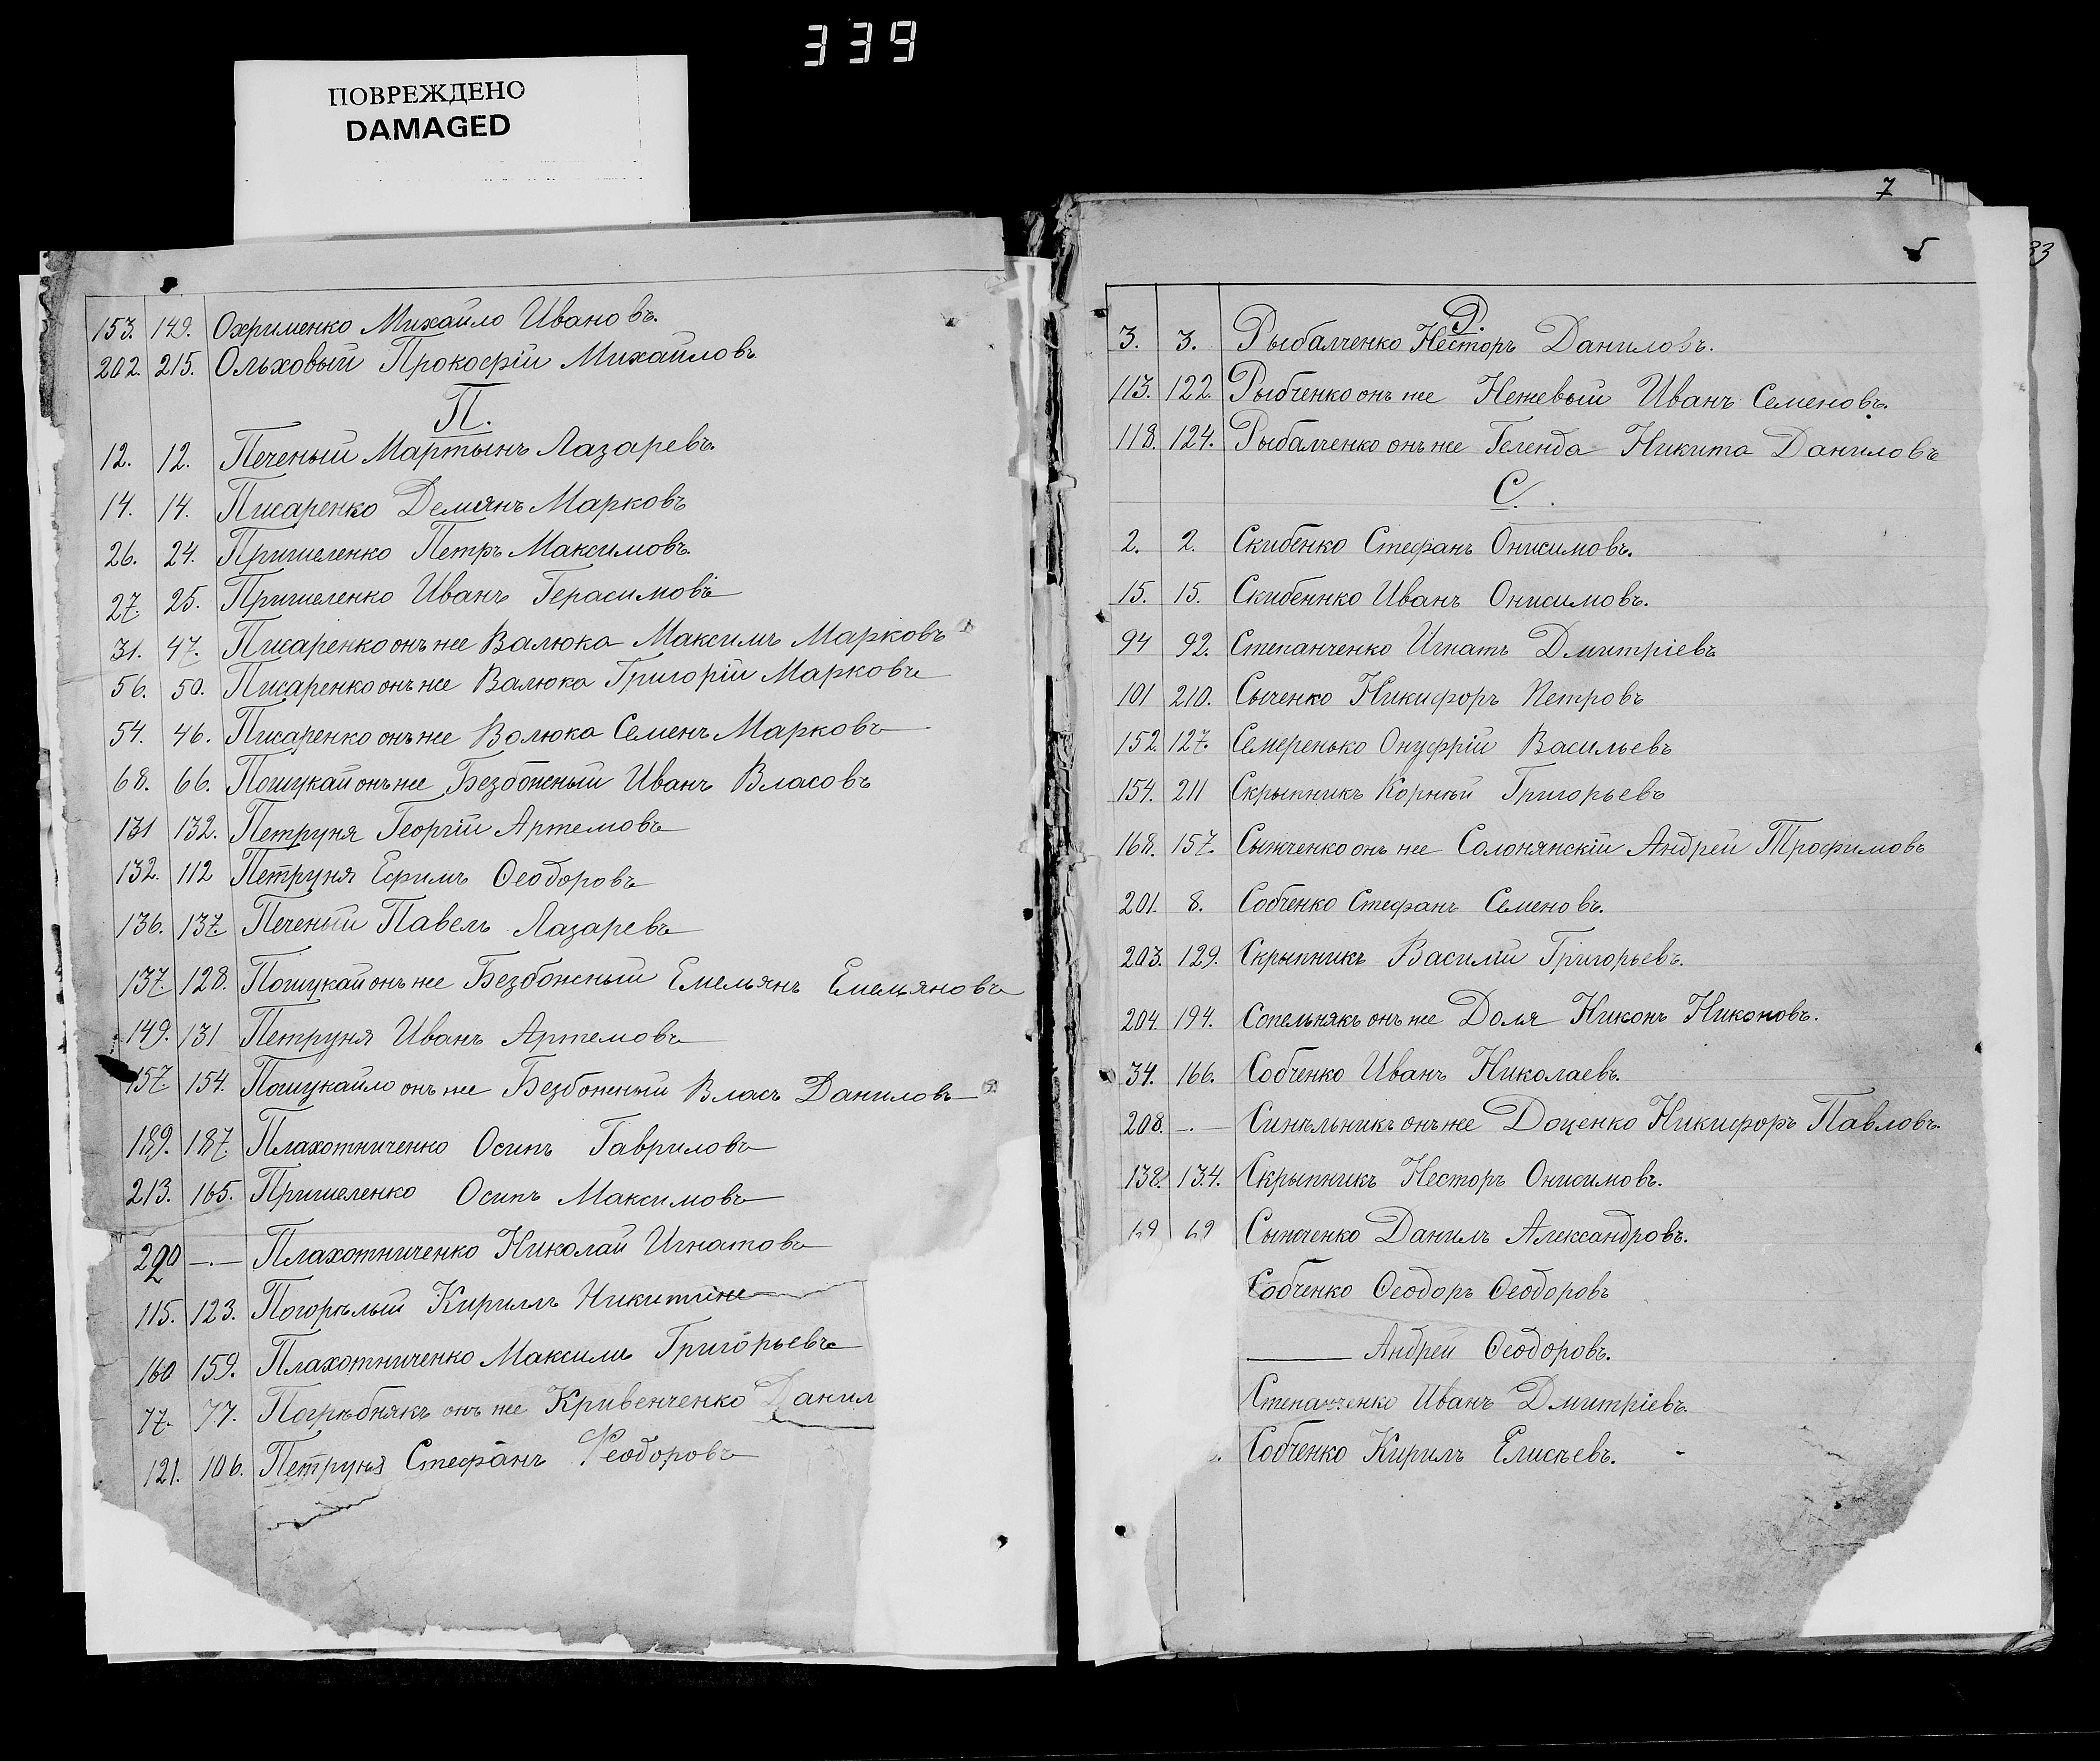 339
ПОВРЕЖДЕНО
DAMAGED
153. 149. Охрименко Михайло Ивановъ.
202. 215. Ольховый Прокофій Михайловъ
П.
12. 12. Печеный Мартынъ Лазаревъ.
14. 14. Писаренко Демянъ Марковъ
26. 24. Пришеленко Петръ Максимовъ.
27. 25. Пришеленко Иванъ Герасимовъ
31. 47. Писаренко онъ же Валюка Максимъ Марковъ
56. 50. Писаренко онъ же Валюка Григорій Марковъ
54. 46. Писаренко онъ же Валюка Семенъ Марковъ
68. 66. Пошукай онъ же Безбожный Иванъ Власовъ
131 132. Петруня Георгій Артемовъ
132. 112 Петруня Ефимъ Ѳеодоровъ
136. 137. Печеный Павелъ Лазаревъ
137. 128. Пошукай онъ же Безбожный Емельянъ Емельяновъ
149. 131 Петруня Иванъ Артемовъ
157. 154. Пошукайло онъ же Безбожный Власъ Даниловъ
189. 187. Плахотниченко Осипъ Гавриловъ
213. 165. Пришеленко Осипъ Максимовъ
290 —.— Плахотниченко Николай Игнатовъ
115. 123. Погорѣлый Кириллъ Никитинъ
160 159. Плахотниченко Максимъ Григорьевъ
77. 77. Погрѣбнякъ онъ же Кривенченко Данил
121. 106. Петруня Стефанъ Ѳеодоровъ
7
5
33
Р.
3. 3. Рыбалченко Несторъ Даниловъ.
113. 122. Рыбченко онъ же Нежевый Иванъ Семеновъ.
118. 124. Рыбалченко онъ же Геленда Никита Даниловъ
С.
2. 2. Скибенко Стефанъ Онисимовъ.
15. 15. Скибеннко Иванъ Онисимовъ.
94 92. Степанченко Игнатъ Дмитріевъ
101 210. Сыченко Никифоръ Петровъ
152 127. Семеренько Онуфрій Васильевъ
154. 211 Скрыпникъ Корнѣй Григорьевъ
168. 157. Сыженко онъ же Солонянскій Андрей Трофимовъ
201. 8. Собченко Стефанъ Семеновъ.
203. 129. Скрыпникъ Василій Григорьевъ.
204. 194. Сопельнякъ онъ же Доля Никонъ Никоновъ.
34. 166. Собченко Иванъ Николаевъ.
208. —.— Синѣльникъ онъ же Доценко Никифоръ Павловъ.
138. 134. Скрыпникъ Несторъ Онисимовъ.
69 69 Сыженко Данилъ Александровъ.
Собченко Ѳеодоръ Ѳеодоровъ
—— Андрей Ѳеодоровъ.
Степанченко Иванъ Дмитріевъ.
Собченко Кирилъ Елисѣевъ.